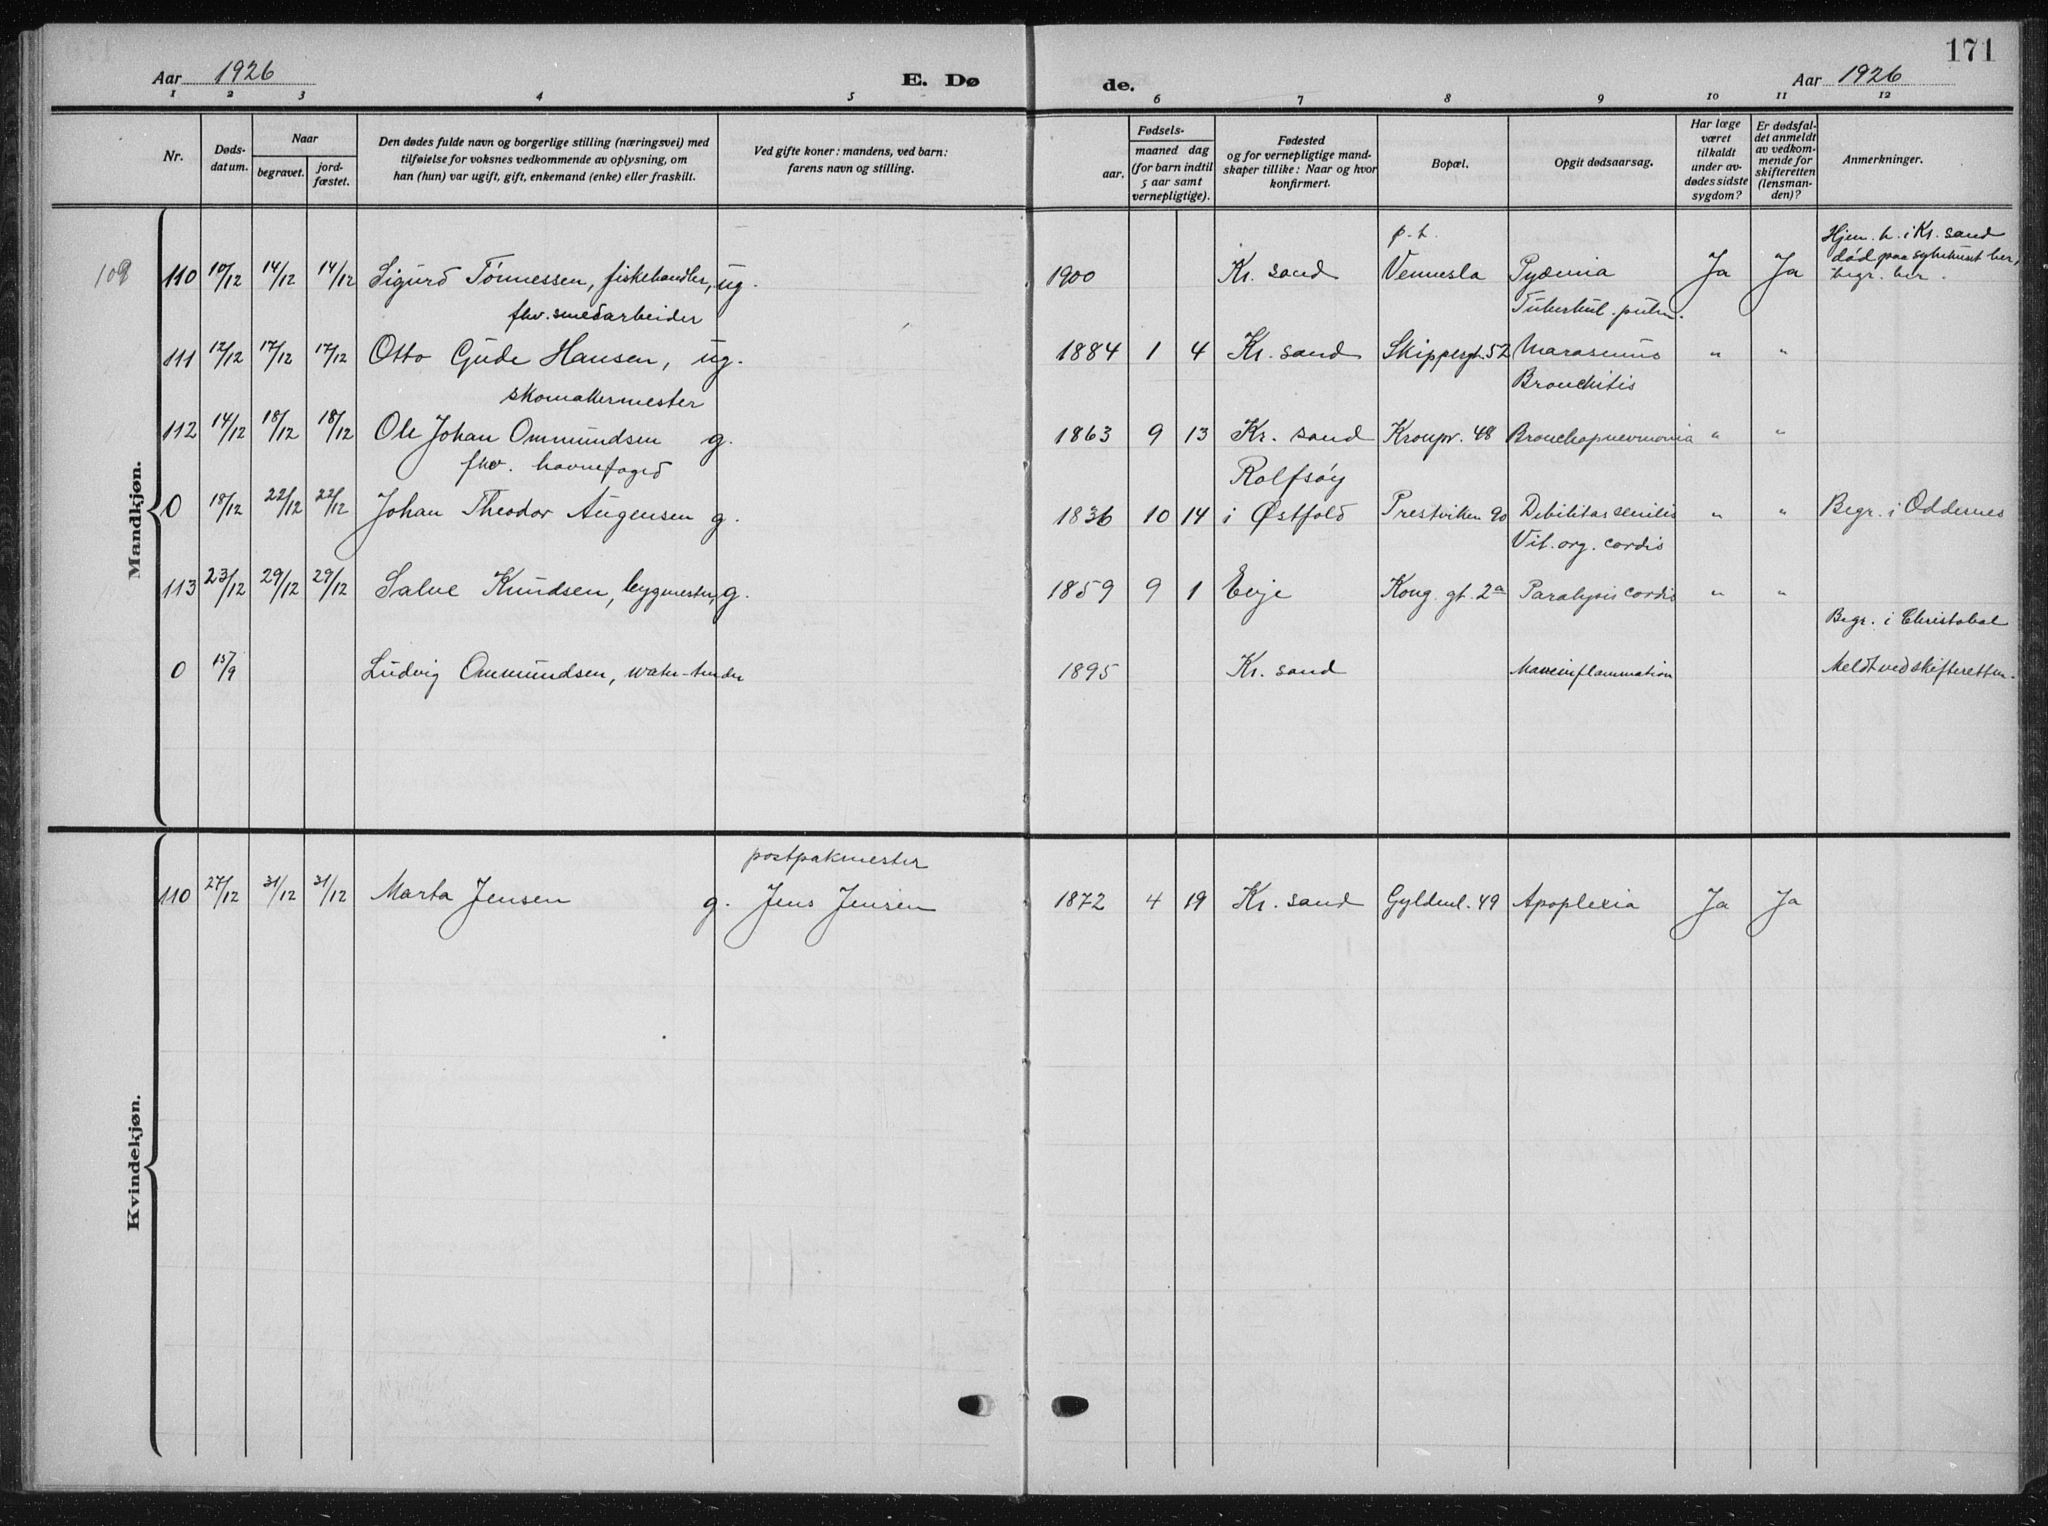 171
Aar 1926 E. Dø de. Aar 1926
1 2 3 4 5 6 7 8 9 10 11 12
Nr. Døds-datum. Naar begravet. jord-fæstet. Den dødes fulde navn og borgerlige stilling (næringsvei) med tilføielse for voksnes vedkommende av oplysning, om han (hun) var ugift, gift, enkemand (enke) eller fraskilt. Ved gifte koner: mandens, ved barn: farens navn og stilling. Fødsels- aar. maaned dag (for barn indtil 5 aar samt vernepligtige). Fødested og for vernepligtige mandskaper tillike: Naar og hvor konfirmert. Bopæl. Opgit dødsaarsag. Har læge været tilkaldt under avdødes sidste sygdom? Er dødsfaldet anmeldt av vedkommende for skifteretten (lensmanden)? Anmerkninger.
Mandkjøn.
p.t. Hjem. h. i Kr. sand
109 110 10/12 14/12 14/12 Sigurd Tönnessen, fiskehandler, ug. 1900 Kr. sand Vennesla Pyæmia Ja Ja død paa sykehuset her, begr. her.
fhv. smedarbeider Tuberkul. pulm.
111 12/12 17/12 17/12 Otto Gude Hansen, ug. 1884 1 4 Kr. sand Skippergt. 52 Marasmus " "
skomakermester Bronchitis
112 14/12 18/12 18/12 Ole Johan Ommundsen g. 1863 9 13 Kr. sand Kronpr. 48 Bronchopneumonia " "
fhv. havnefoged Rolfsöy
0 18/12 22/12 22/12 Johan Theodor Augensen g. 1836 10 14 i Østfold Prestviken 90 Debilitas senilis " " Begr. i Oddernes
Vit. org. cordis
113 23/12 29/12 29/12 Salve Knudsen, bygmester, g. 1859 9 1 Evje Kong. gt. 2a Paralysis cordis " "
Begr. i Christobal
0 15/9 Ludvig Ommundsen, water-tender 1895 Kr. sand Maveinflammation Meldt ved skifteretten.
Kvindekjøn.
postpakmester
110 27/12 31/12 31/12 Marta Jensen g. Jens Jensen 1872 4 19 Kr. sand Gyldenl. 49 Apoplexia Ja Ja